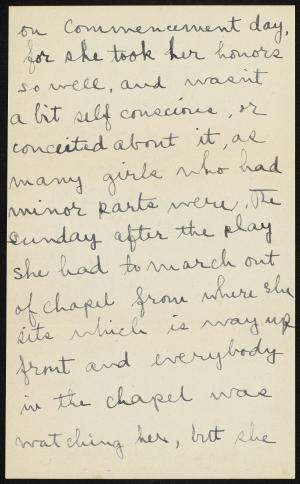 on Commencement day,
for she took her honors
so well, and wasn't
a bit self conscious, or
conceited about it, as
many girls who had
minor parts were. The
Sunday after the play
she had to march out
of chapel from where she
sits which is way up
front and everybody
in the chapel was
watching her, but she